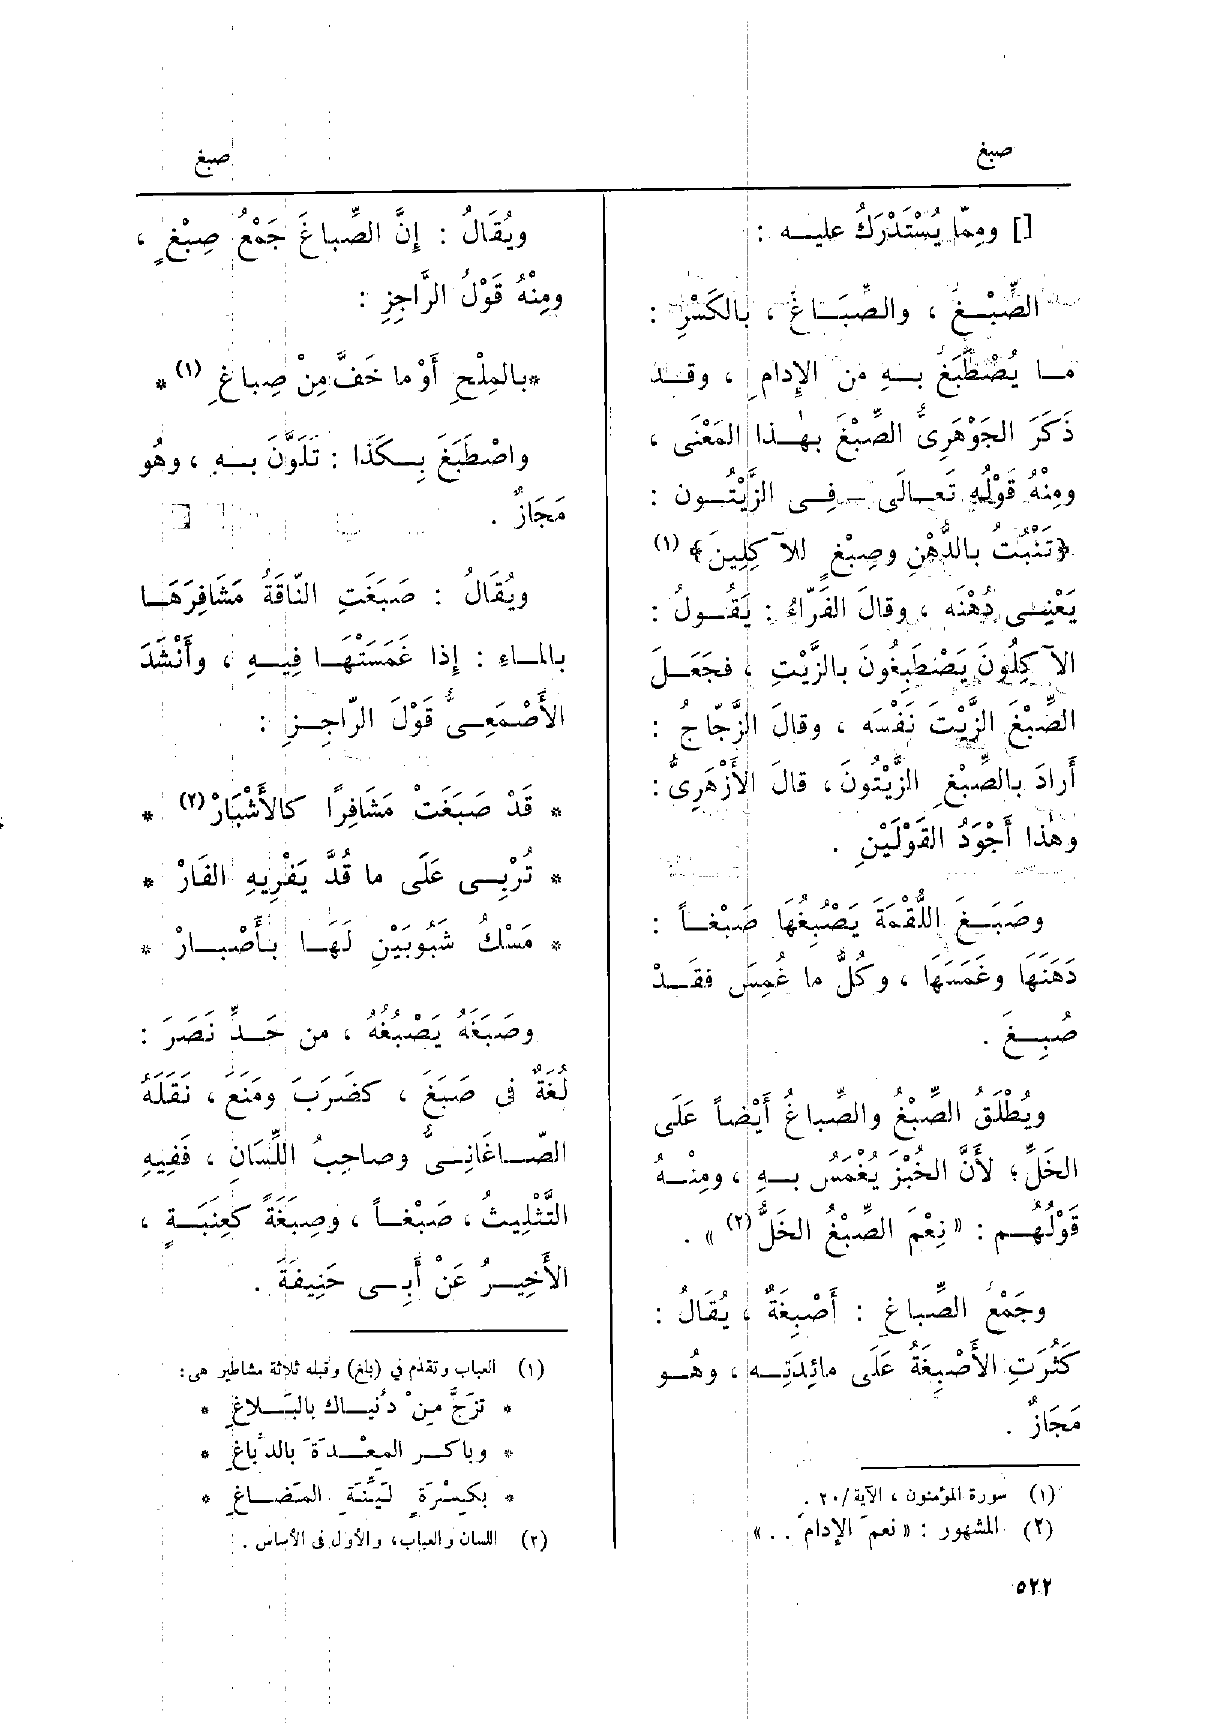 صبغ
صبغ
[] ومِمّا يُسْتَدْرَكُ عليه :
الصِّبْغُ ، والصِّبَاغُ ، بالكَسْرِ :
ما يُصْطَبَغُ به مِن الإِدامِ ، وقد
ذَكَرَ الجَوْهَرِىُّ الصِّبْغَ بهذا المَعْنى ،
ومِنْهُ قَوْلُه تَعالَى – فِى الزَّيْتُون :
﴿تَنْبُتُ بالدُّهْنِ وصِبْغٍ للآكِلِينَ﴾ (١)
يَعْنِى دُهْنَه ، وقالَ الفَرّاءُ : يَقُولُ :
الآكِلُونَ يَصْطَبِغُونَ بالزَّيْتِ ، فجَعَلَ
الصِّبْغَ الزَّيْتَ نَفْسَه ، وقالَ الزَّجّاجُ :
أَرادَ بالصِّبْغِ الزَّيْتُونَ ، قالَ الأَزْهَرِىُّ :
وهٰذا أَجْوَدُ القَوْلَيْنِ .
وصَبَغَ اللُّقْمَةَ يَصْبُغُهَا صَبْغاً :
دَهَنَهَا وغَمَسَهَا ، وكُلُّ ما غُمِسَ فقَدْ
صُبِغَ .
ويُطْلَقُ الصِّبْغُ والصِّباغُ أَيْضاً عَلَى
الخَلِّ؛ لأَنَّ الخُبْزَ يُغْمَسُ بهِ ، ومِنْهُ
قَوْلُهُم : « نِعْمَ الصِّبْغُ الخَلُّ (٢) » .
وجَمْعُ الصِّباغِ : أَصْبِغَةٌ ، يُقَالُ :
كَثُرَتِ الأَصْبِغَةُ عَلَى مائِدَتِه ، وهُو
مَجَازٌ .
(١) سورة المؤمنون ، الآية/٢٠ .
(٢) المشهور : « نعمَ الإدامُ . . »
٥٢٢
ويُقَالُ : إِنَّ الصِّباغَ جَمْعُ صِبْغٍ ،
ومِنْهُ قَوْلُ الرَّاجِزِ :
*بالمِلْحِ أَوْ ما خَفَّ مِنْ صِباغِ (١) *
واصْطَبَغَ بِكَذا : تَلَوَّنَ بهِ ، وهُو
مَجَازٌ .
ويُقَالُ : صَبَغَتِ النّاقَةُ مَشَافِرَهَا
بالماءِ : إِذا غَمَسَتْهَا فِيهِ ، وأَنْشَدَ
الأَصْمَعِىُّ قَوْلَ الرّاجِزِ :
* قَدْ صَبَغَتْ مَشَافِرًا كالأَشْبَارْ (٢) *
* تُرْبِى عَلَى ما قُدَّ يَفْرِيهِ الفَارْ *
* مَسْكُ شَبُوبَيْنِ لَهَا بأَصْبارْ *
وصَبَغَهُ يَصْبُغُهُ ، من حَدِّ نَصَرَ :
لُغَةٌ فى صَبَغَ ، كضَرَبَ ومَنَعَ ، نَقَلَهُ
الصّاغَانِىُّ وصاحِبُ اللِّسَانِ ، فَفِيهِ
التَّثْلِيثُ ، صَبْغاً ، وصِبَغَةً كعِنَبَةٍ ،
الأَخِيرُ عَنْ أَبِى حَنِيفَةَ .
(١) العباب وتقدّم في (بلغ) وقبله ثلاثة مشاطير هى :
* تزَجَّ مِنْ دُنياك بالبَلاغِ *
* وباكر المِعْدةَ بالدِّباغِ *
* بكِسْرَةٍ لَيِّنَةِ المَضاغِ *
(٢) اللسان والعباب، والأول فى الأساس .